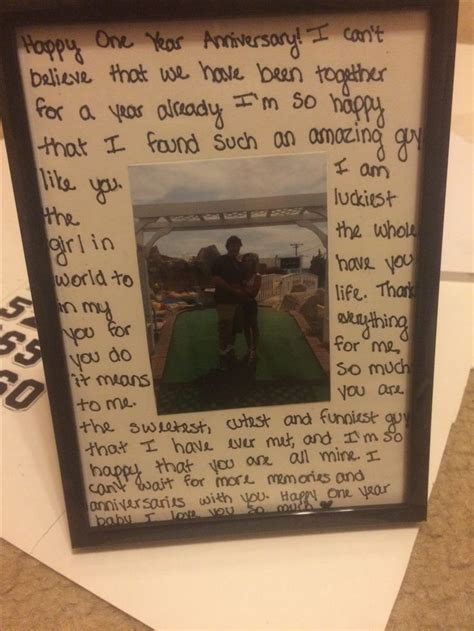 Happy One Year Anniversary! I can't
believe that we have been together
for a year already I'm so happy
that I found such an amazing guy
like you. I am
the luckiest
girl in the whole
world to have you
in my life. Thank
you for everything
you do for me,
it means so much
to me. you are
the sweetest, cutest and funniest guy
that I have ever met, and I'm so
happy that you are all mine. I
can't wait for more memories and
anniversaries with you. Happy One year
baby I love you so much ♥
65
60